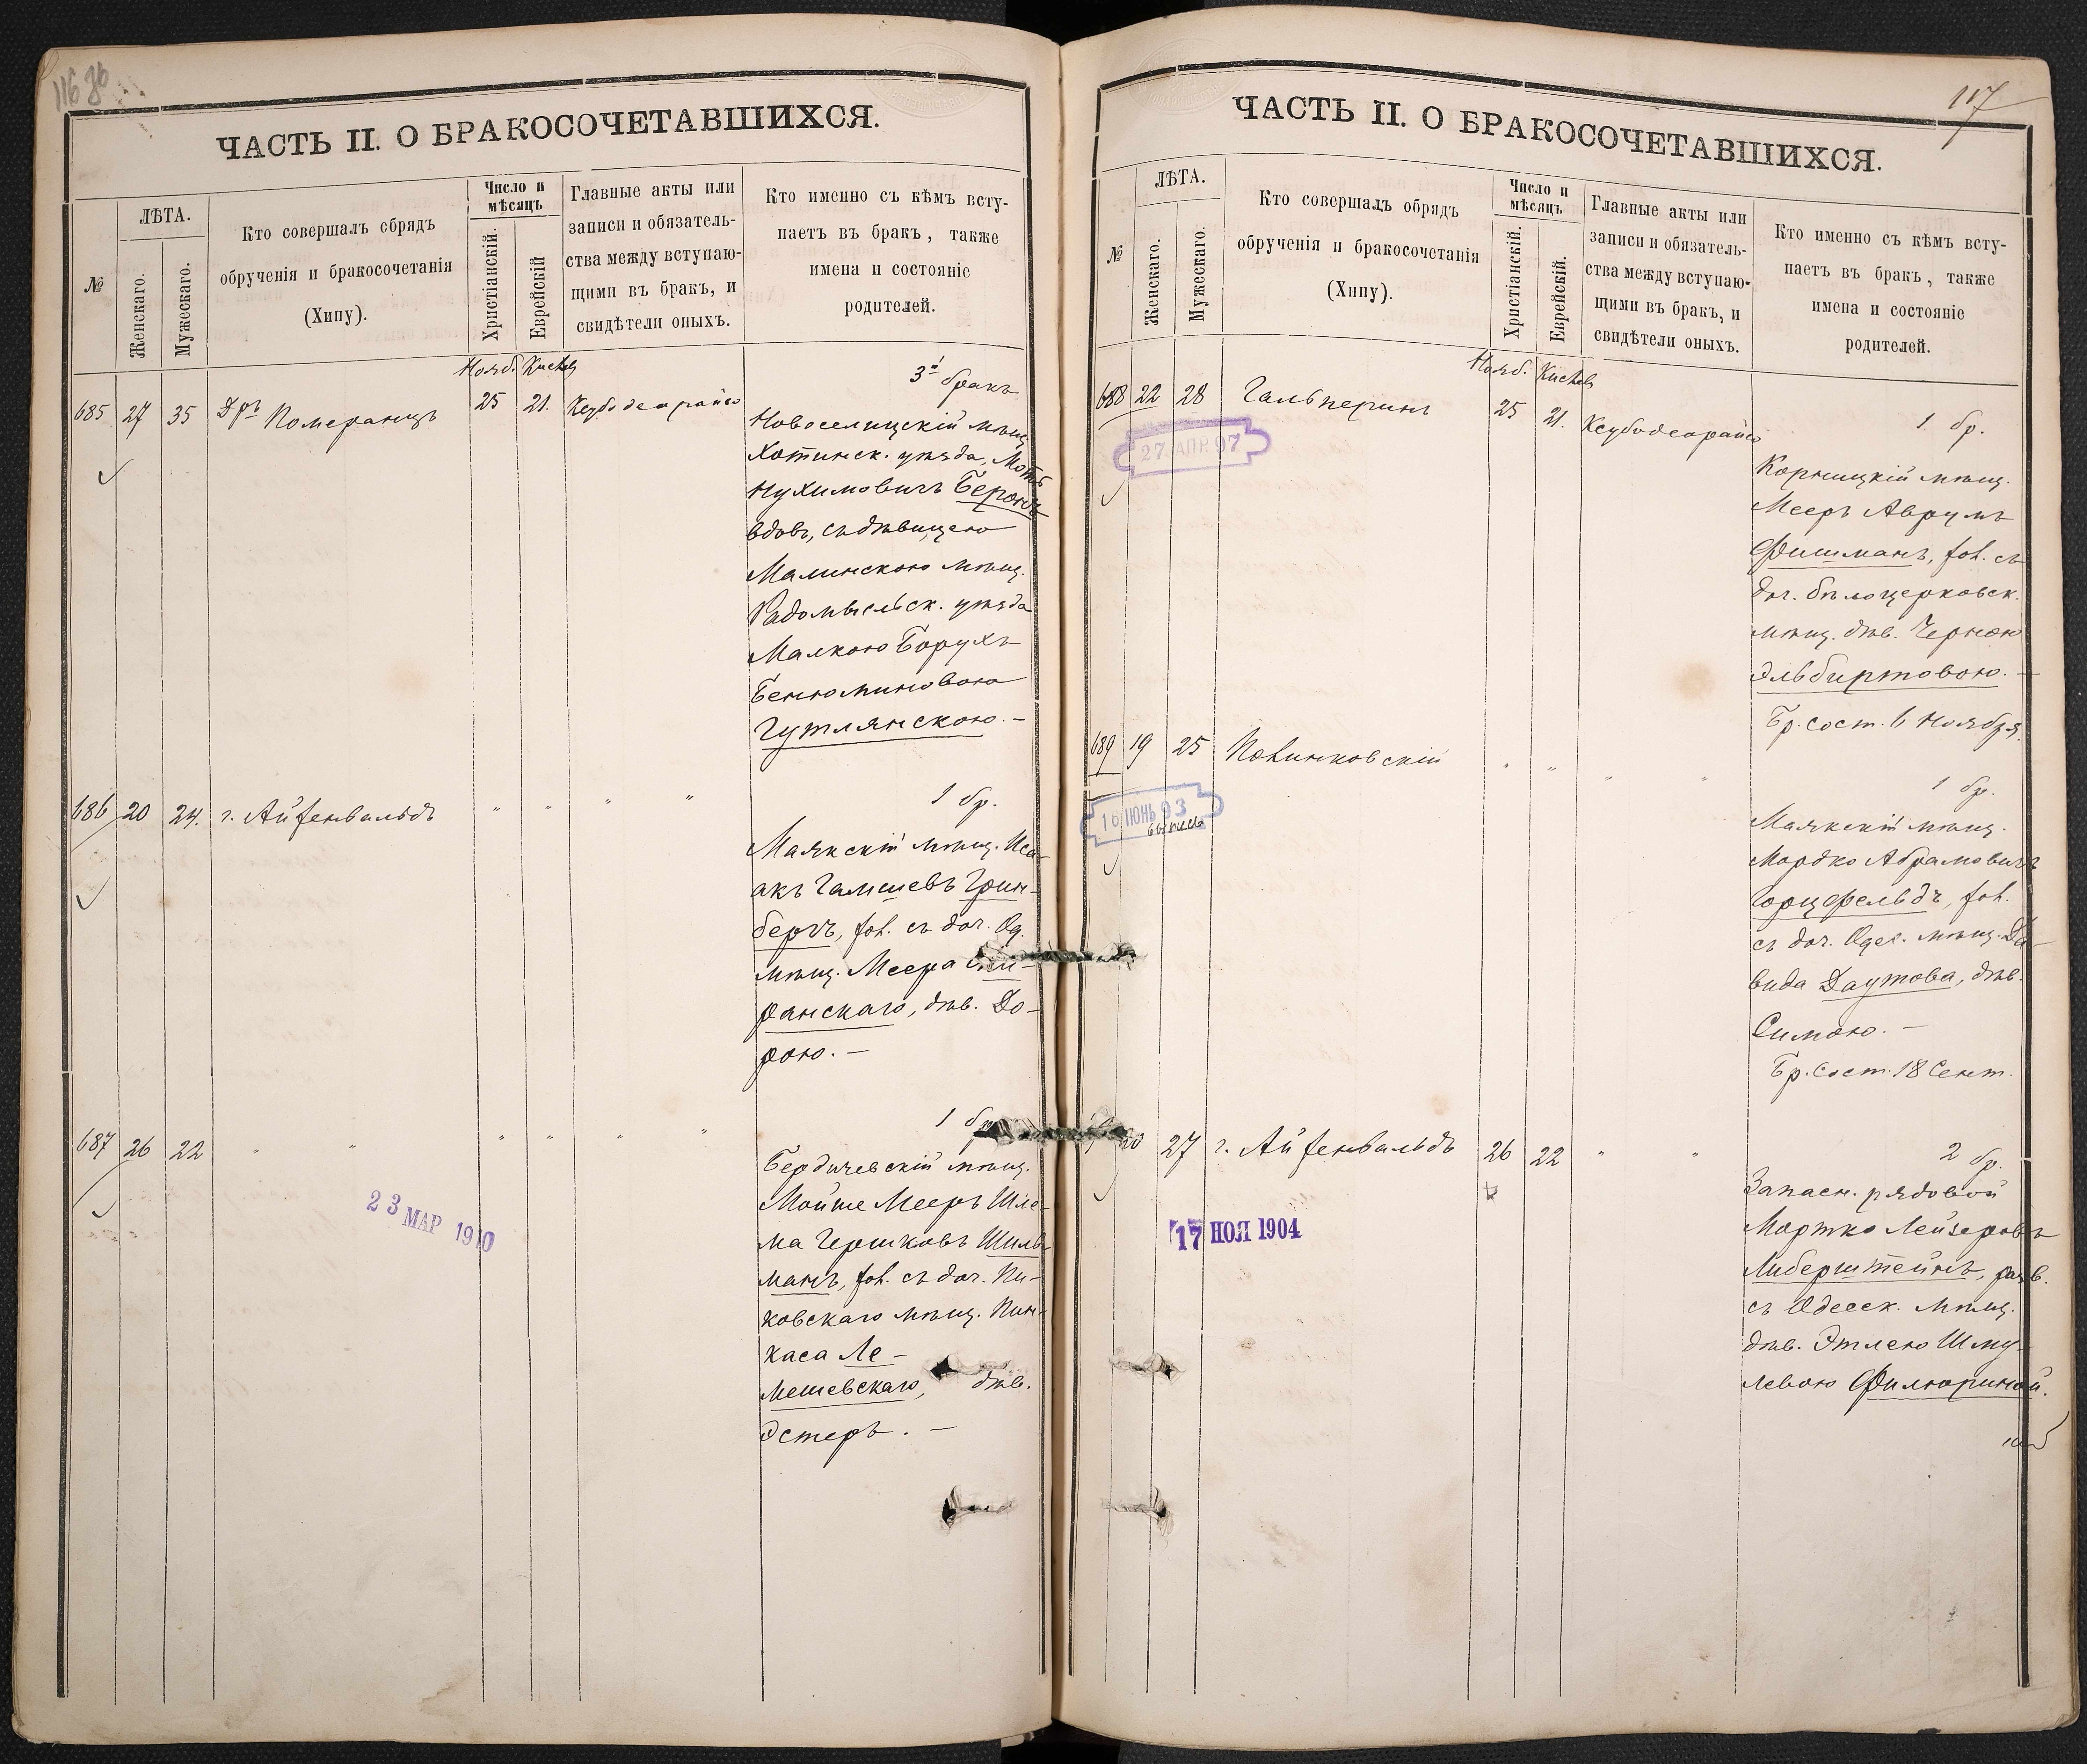 116 об
ЧАСТЬ II. О БРАКОСОЧЕТАВШИХСЯ.
№
ЛѢТА.
Женскаго.
Мужескаго.
Кто совершалъ обрядъ
обрученія и бракосочетанія
(Хипу).
Число и
мѣсяцъ
Христіанскій.
Еврейскій
Главные акты или
записи и обязатель-
ства между вступаю-
щими въ бракъ, и
свидѣтели оныхъ.
Кто именно съ кѣмъ всту-
паетъ въ бракъ, также
имена и состояніе
родителей.
Нояб. Кислев
685 27 35 Дръ Померанцъ 25 21. Ксубодеорайсо
3й бракъ
Новоселицкій мѣщ.
Хотинск. уѣзда, Мотъ
Нухимовичъ Беронъ
вдовъ, съ дѣвицею
Малинскою мѣщ.
Радомысльск. уѣзда
Малкою Борухъ
Бенюминовою
Гутлянскою. —
686 20 24. г. Айзенвальдъ " " " "
1 бр.
Маякскій мѣщ. Иса-
акъ Гамшевъ Грин-
бергъ, хол. съ доч. Од.
мѣщ. Меера
ранскаго, дѣв. До-
рою. —
687 26 22 " " " " " "
1 бр.
Бердичевскій мѣщ.
Мойше Мееръ Шле-
ма Гершковъ Шиль-
манъ, хол. съ доч. Пи-
ковскаго мѣщ. Пин-
хаса Ле-
мешевскаго, дѣв.
Эстеръ. —
23 МАР 1910
117
ЧАСТЬ II. О БРАКОСОЧЕТАВШИХСЯ.
№
ЛѢТА.
Женскаго.
Мужескаго.
Кто совершалъ обрядъ
обрученія и бракосочетанія
(Хипу).
Число и
мѣсяцъ
Христіанскій.
Еврейскій.
Главные акты или
записи и обязатель-
ства между вступаю-
щими въ бракъ, и
свидѣтели оныхъ.
Кто именно съ кѣмъ всту-
паетъ въ бракъ, также
имена и состояніе
родителей.
Нояб. Кислев
688 22 28 Гальперинъ 25 21. Ксубодеорайсо
27 АПР 97
1 бр.
Корницкій мѣщ.
Мееръ Аврумъ
Фишманъ, хол. съ
доч. бѣлоцерковск.
мѣщ. дѣв. Черною
Эльбиртовою. —
Бр. сост. 6 Ноября.
689 19 25 Полинковскій " " " "
16 ІЮНЬ 93
1 бр.
Маякскій мѣщ.
Мордко Абрамовичъ
Горцфельдъ, хол.
съ доч. Одес. мѣщ. Да-
вида Даутова, дѣв.
Симою. —
Бр. сост. 18 Сент.
20 27 г. Айзенвальдъ 26 22 " "
17 НОЯ 1904
2 бр.
Запасн. рядовой
Мортко Лейзеровъ
Либерштейнъ, разв.
съ Одесск. мѣщ.
дѣв. Этлею Шму-
левою Филюриной.